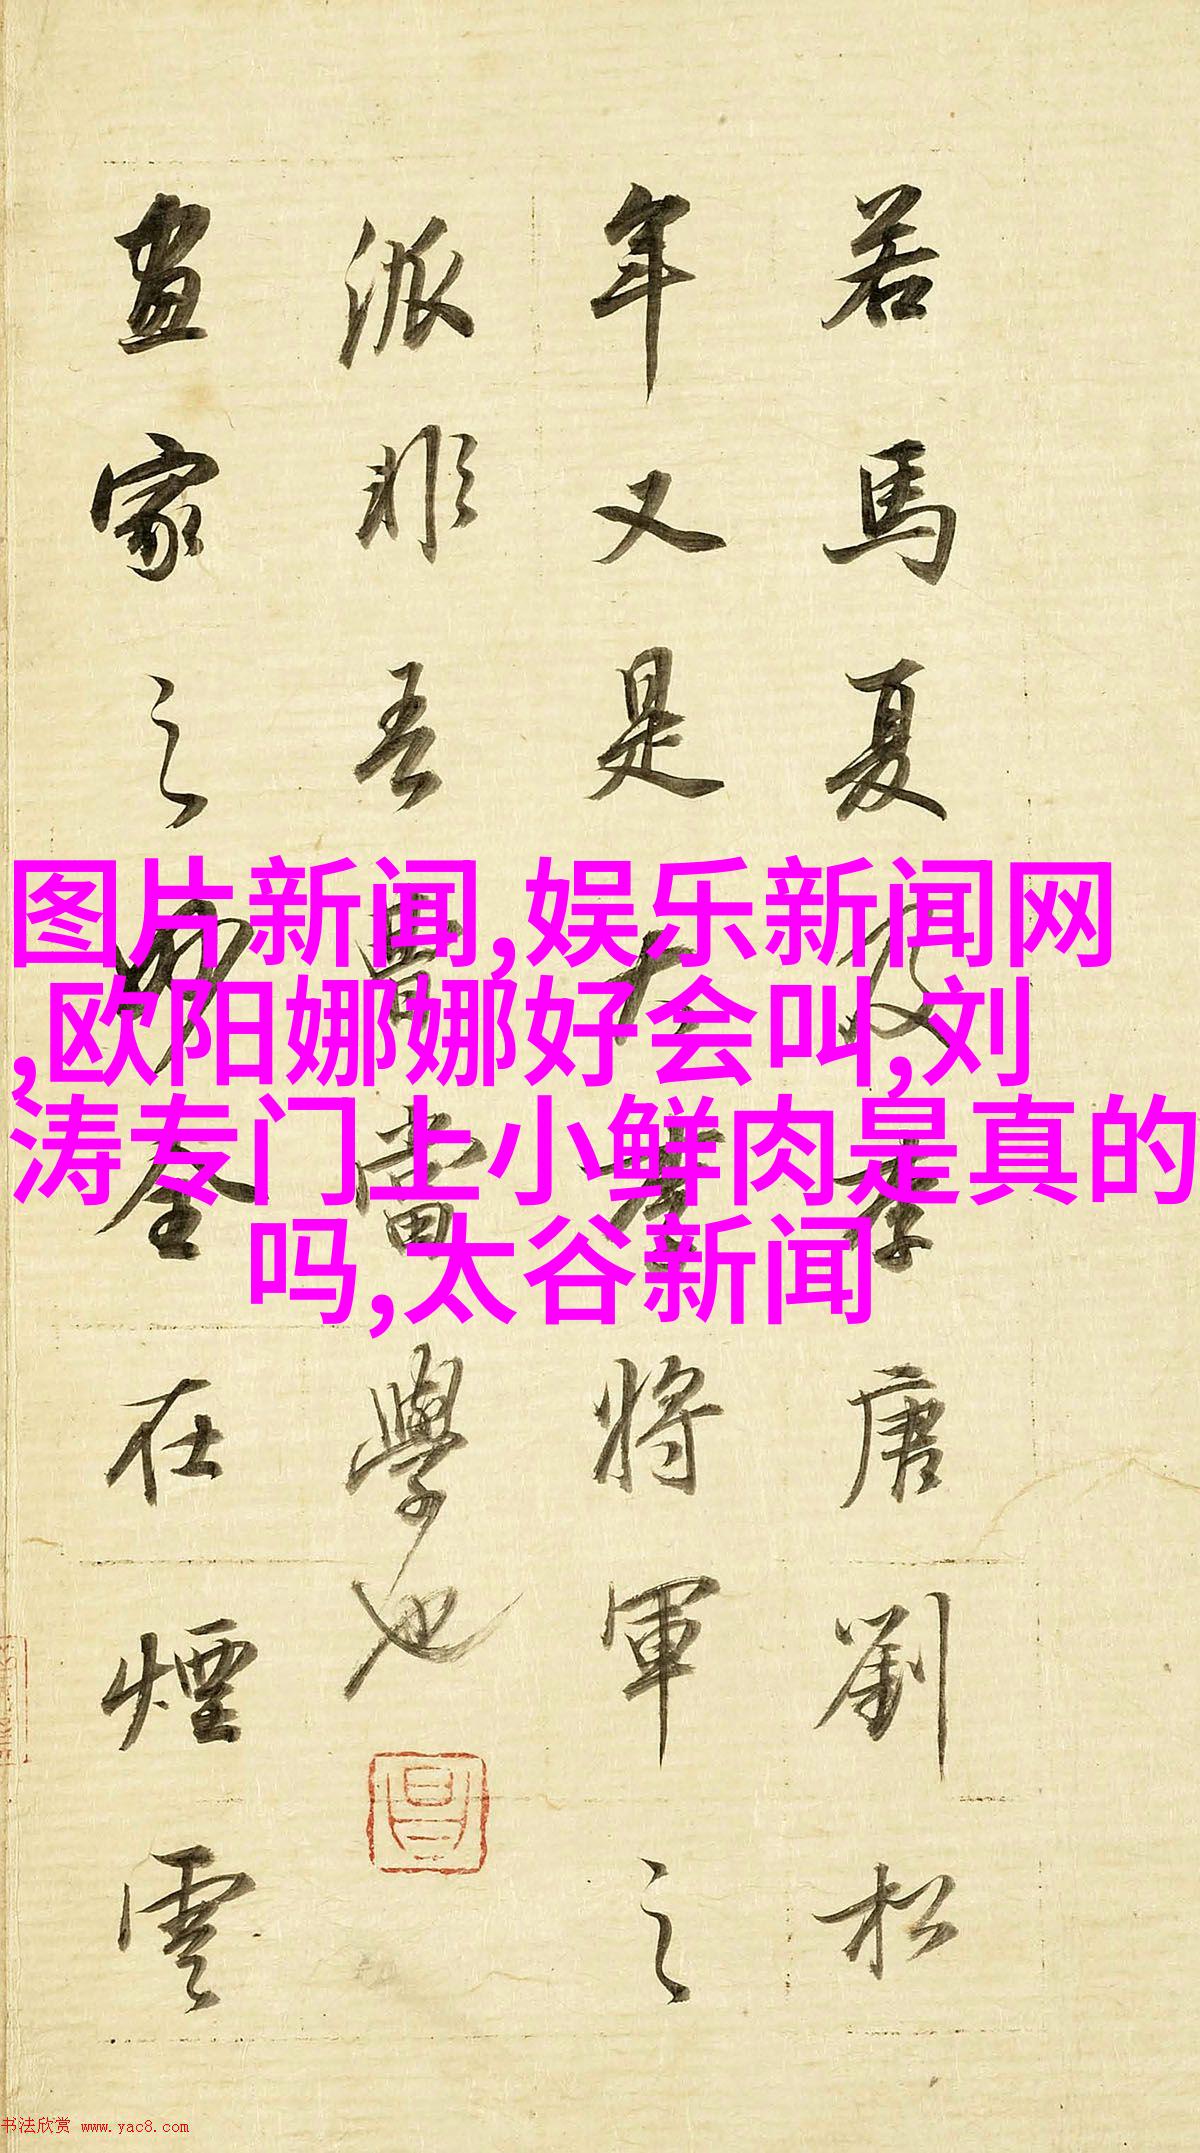 若馬夏及李唐劉松
年又是大李將軍之
派非吾曹當學也
畫家之妙全在煙雲
图片新闻,娱乐新闻网
,欧阳娜娜好会叫,刘
涛专门上小鲜肉是真的
吗,太谷新闻
书法欣赏 www.yac8.com